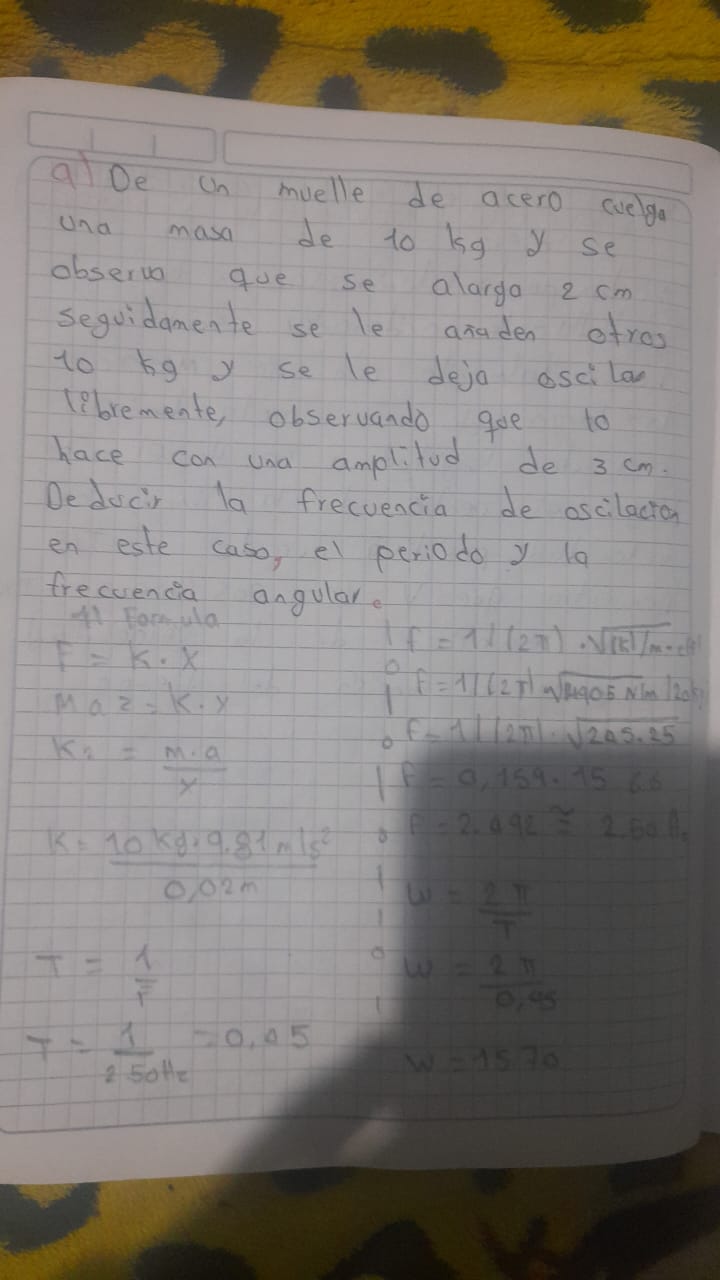 a) De un muelle de acero cuelga
una masa de 10 kg y se
observa que se alarga 2 cm
seguidamente se le añaden otros
10 kg y se le deja oscilar
libremente, observando que lo
hace con una amplitud de 3 cm.
Deducir la frecuencia de oscilación
en este caso, el periodo y la
frecuencia angular.
Formula
F = K . X
K = m.a / x
K = 10 kg . 9.81 m/s² / 0,02m
T = 1 / F
T = 1 / 2.50Hz = 0,4 S
f = 1/(2π) . √205.25
f = 0,159 . 15 66
f = 2.492 ≅ 2.50 Hz
W = 2π / T
W = 2π / 0,4s
W = 15.70